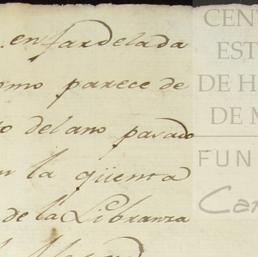 enfardelada
omo parece de
o del ano pasado
la qüenta
de la Libranza
CENT
EST
DE H
DE M
FUN
Car